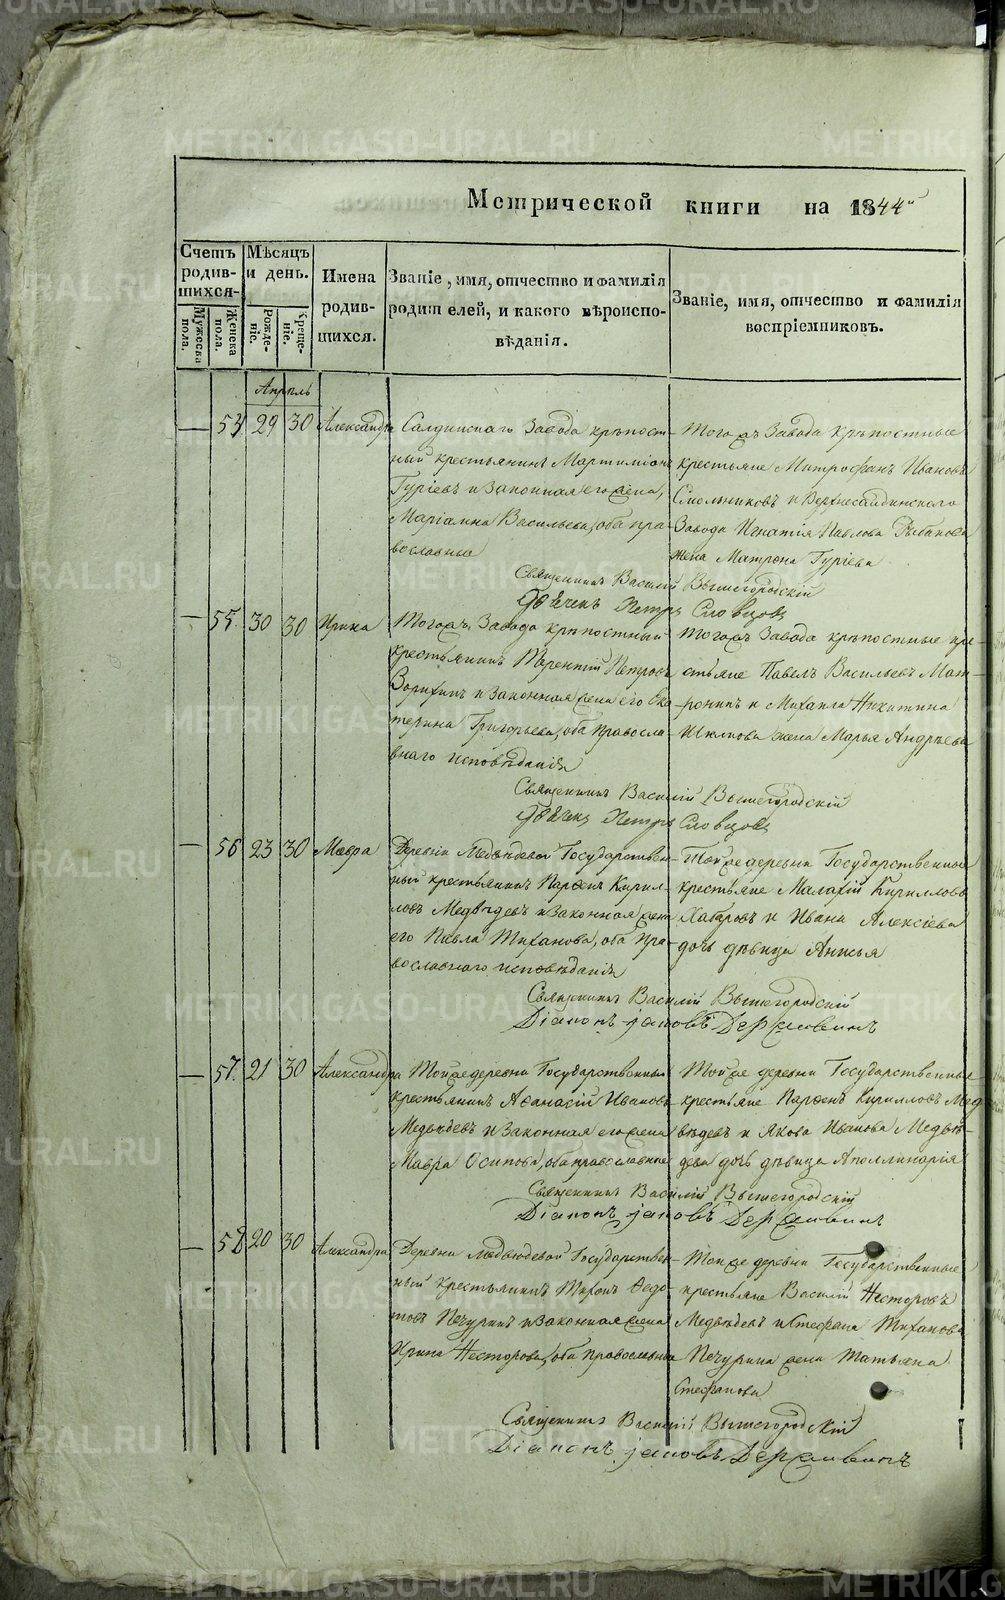 Метрической книги на 1844й
Счетъ родив-
шихся.
Мужеска пола.
Женска пола.
Мѣсяцъ и день.
Рожде-
ніе.
Креще-
ніе.
Имена родив-
шихся.
Званіе, имя, отчество и фамилія
родителей, и какого вѣроиспо-
вѣданія.
Званіе, имя, отчество и фамилія
воспріемниковъ.
Апрѣль
— 29 30 Александра
Салдинскаго Завода крѣпост-
ный крестьянинъ
Гуріевъ и Законная его жена,
Маріамна Васильева, оба пра-
вославные
Тогожъ Завода крѣпостные
крестьяне Митрофанъ Ивановъ
Смольниковъ и Верхнесалдинского
Завода Игнатія Павлова Рыбакова
жена Матрона Гуріева
Священникъ Василій Вышегородскій
Дьячекъ Петръ Словцовъ
— 55. 30 30 Ирина
Тогожъ Завода крѣпостный
крестьянинъ Терентій Петровъ
Зорихинъ и Законная жена его Ека-
терина Григорьева, оба Правосла-
внаго исповѣданія
Тогожъ Завода крѣпостные кре-
стьяне Павелъ Васильевъ Мат-
ронинъ и Михаила Никитина
жена Марья Андрѣева
Священникъ Василій Вышегородскій
Дьячекъ Петръ Словцовъ
— 56 23 30 Мавра
Деревни Медвѣдевой Государствен-
ный крестьянинъ Парѳенъ Кирил-
ловъ Медвѣдевъ и Законная жена
его Павла Тиханова, оба Пра-
вославнаго исповѣданія
Тойже деревни Государственные
крестьяне Малахій Кирилловъ
Хабаровъ и Ивана Алексіева
дочь дѣвица Анисья
Священникъ Василій Вышегородскій
Діаконъ Іаковъ Державинъ
— 57. 21 30 Александра
Тойже деревни Государственный
крестьянинъ Аѳанасій Ивановъ
Медвѣдевъ и Законная его жена
Мавра Осипова, оба православные
Тойже деревни Государственные
крестьяне Парѳенъ Кирилловъ Мед-
вѣдевъ и Якова Иванова Медвѣ-
дева дочь дѣвица Аполлинарія
Священникъ Василій Вышегородскій
Діаконъ Іаковъ Державинъ
— 58 20 30 Александра
Деревни Медвѣдевой Государствен-
ный крестьянинъ Тихонъ Ѳедо-
товъ Печуринъ и Законная жена
Ирина Несторова, оба Православные
Тойже деревни Государственные
крестьяне Василій Несторовъ
Медвѣдевъ и Стефана Тиханова
Печурина жена Татьяна
Стефанова
Священникъ Василій Вышегородскій
Діаконъ Іаковъ Державинъ
METRIKI.GASO-URAL.RU